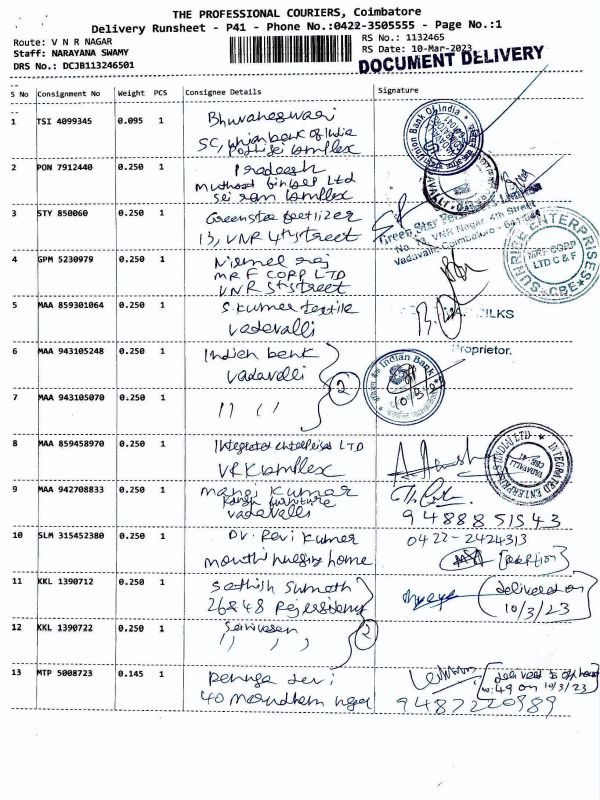 THE PROFESSIONAL COURIERS, Coimbatore
Delivery Runsheet - P41 - Phone No.:0422-3505555 - Page No.:1
Route: V N R NAGAR
Staff: NARAYANA SWAMY
DRS No.: DCJB113246501
RS No.: 1132465
RS Date: 10-Mar-2023
DOCUMENT DELIVERY
S No Consignment No Weight PCS Consignee Details Signature
1 TSI 4099345 0.095 1 Bhuvaneswari
SC, Union bank of India
complex
Union Bank Of India
2 PON 7912440 0.250 1 Pradeesh
Muthoot Ltd
Sri ram complex
3 STY 850060 0.250 1 Greenstar fertilizer
13, VNR 4th street
Green Star
No. 13, VNR Nagar, 4th Street
Vadavalli, Coimbatore - 641041
4 GPM 5230979 0.250 1 Nirmal raj
MRF CORP LTD
VNR 5th street
SUNBIRK ENTERPRISES
MRF CORP
LTD C & F
CBE
5 MAA 859301064 0.250 1 S.kumar textile
vadavalli
SILKS
Proprietor.
6 MAA 943105248 0.250 1 Indian bank
vadavalli
2
Indian Bank
10/3/2
7 MAA 943105070 0.250 1 " "
8 MAA 859458970 0.250 1 Integrated enterprises LTD
VRK complex
INTEGRATED ENTERPRISES (INDIA) LTD
VADAVALLI
CBE-41
9 MAA 942708833 0.250 1 mani kumar
furniture
vadavalli
9488851543
10 SLM 315452380 0.250 1 Dr. Ravi kumar
nursing home
0422-2424313
11 KKL 1390712 0.250 1 Sathish Sumath
26&48 Residency
delivered on
10/3/23
12 KKL 1390722 0.250 1 Srinivasan
" , ,
2
13 MTP 5008723 0.145 1 Devi
40 marudham nagar
delivered to opp house
no:49 on 10/3/23
9487220989